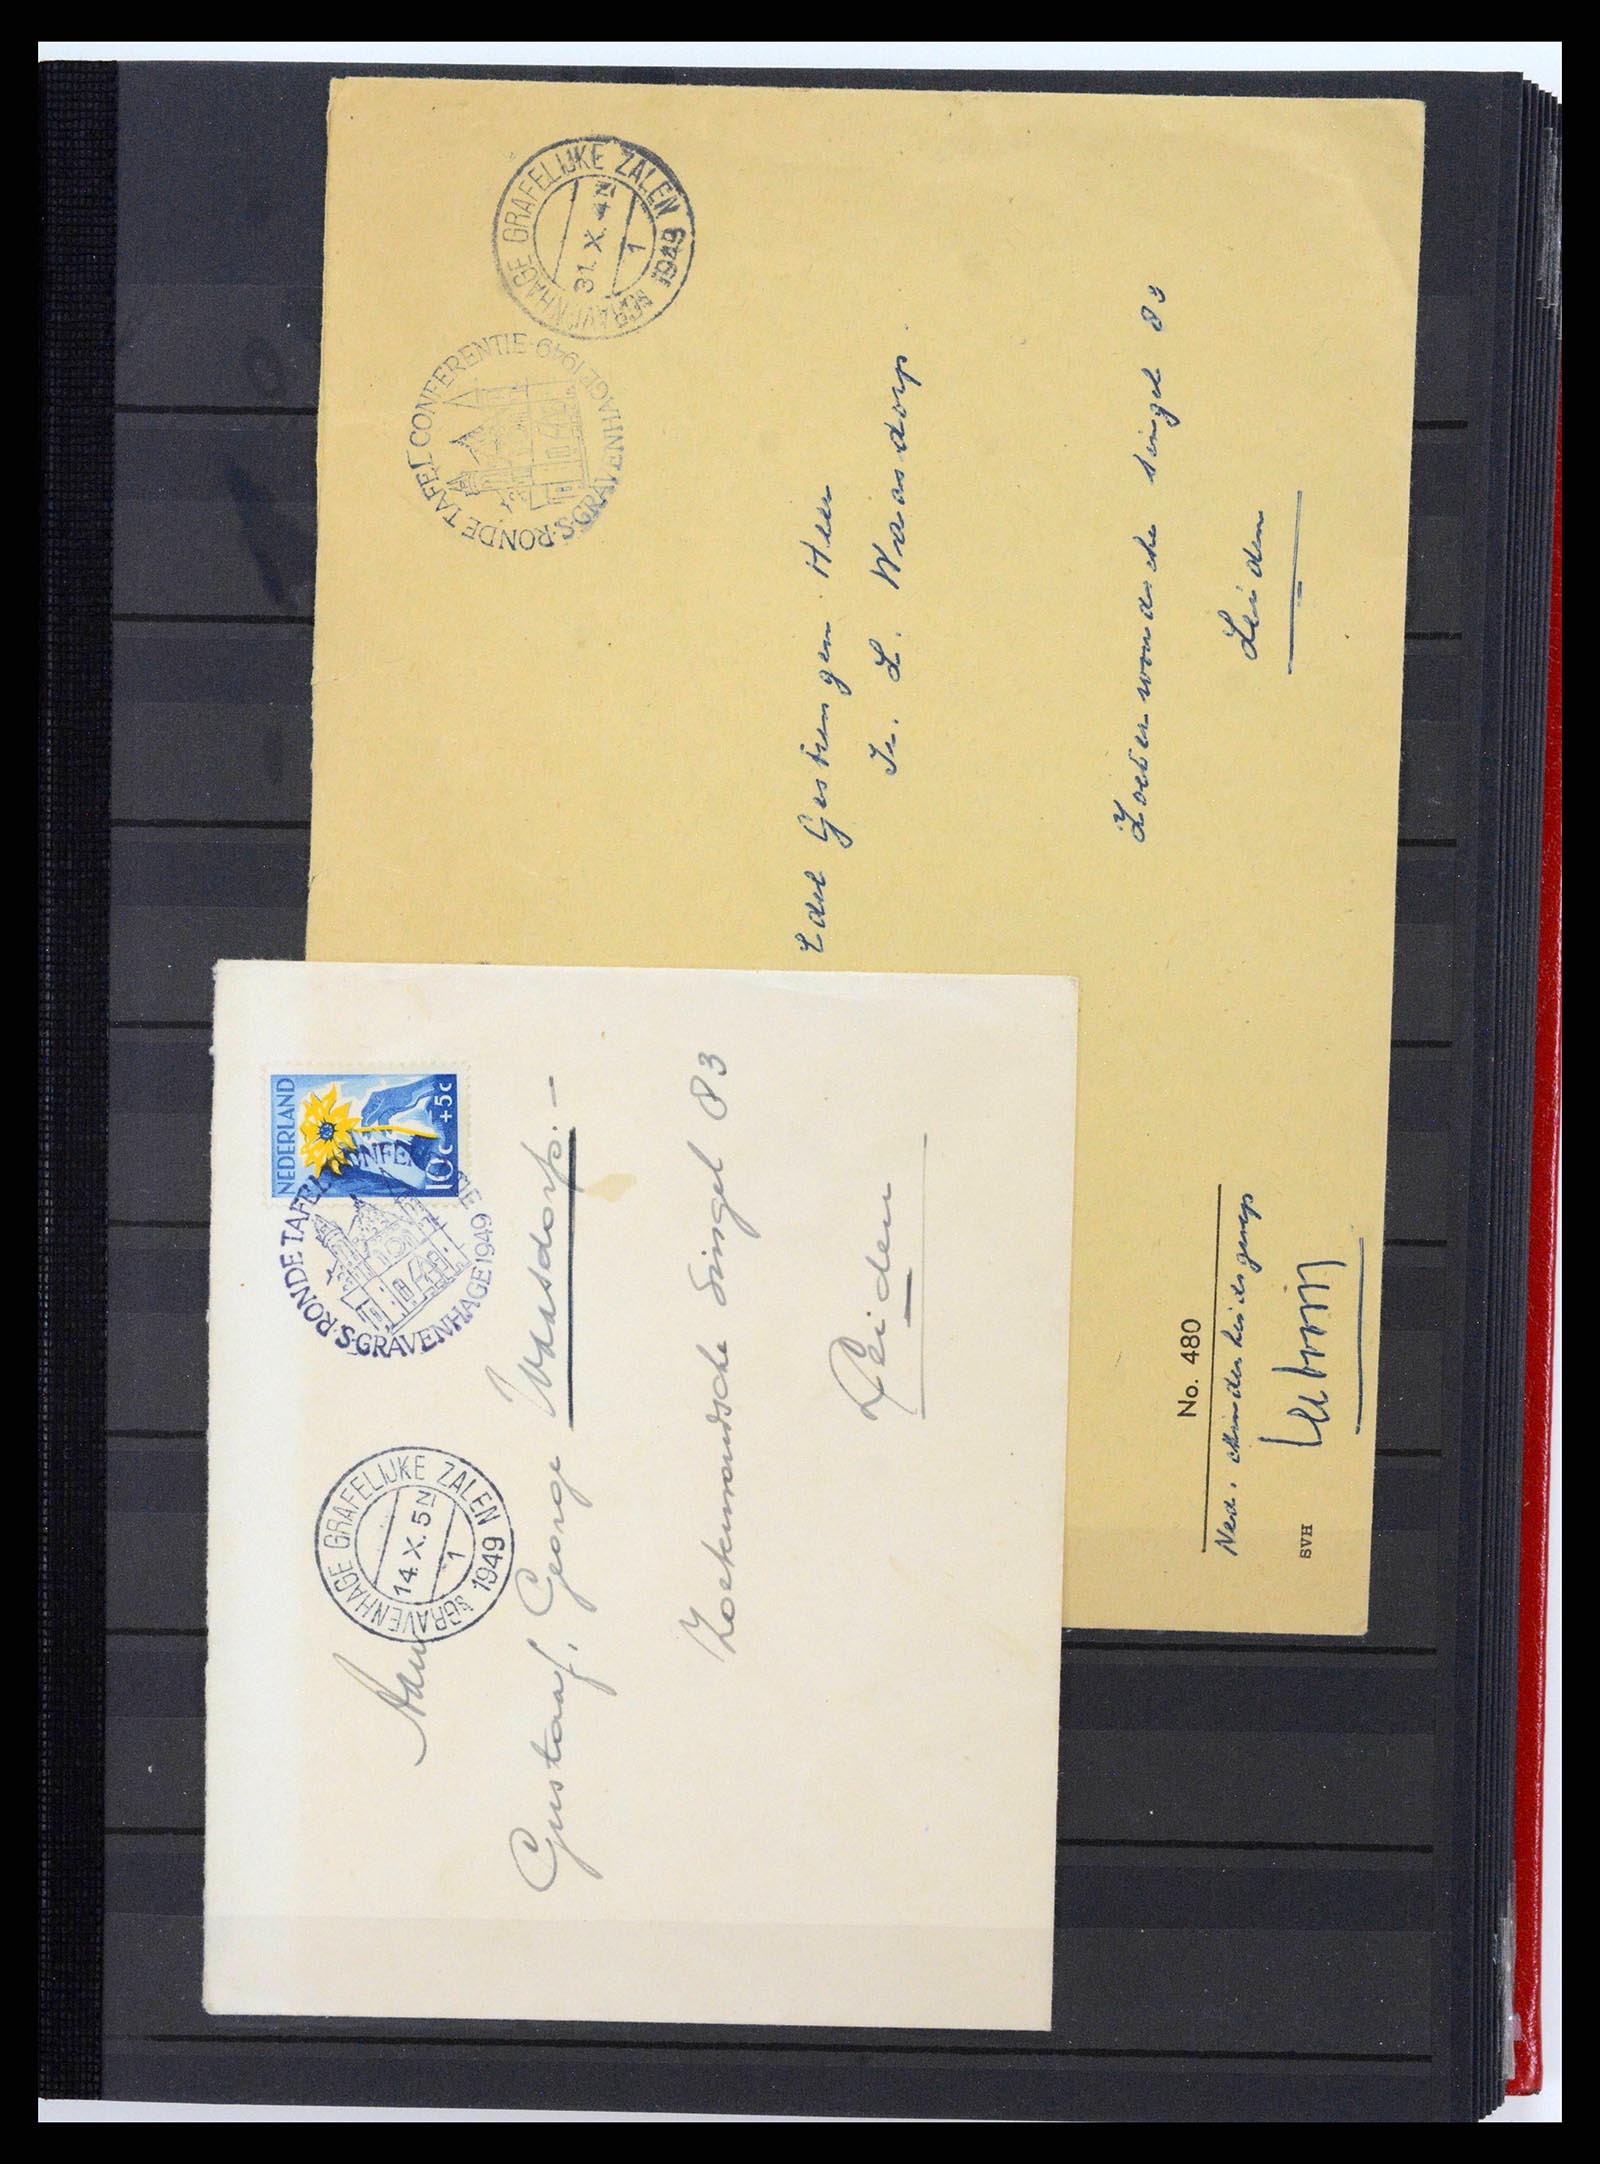 'SGRAVENHAGE GRAFELIJKE ZALEN
31.X.4N
1
1949
RONDE TAFEL CONFERENTIE-1949
'S-GRAVENHAGE 1949
Edel Gestrengen Heer
Ir. L. Waasdorp.
Zoeterwoudsche singel 83
Leiden
No. 480
Ned.
SVH
NEDERLAND
10c +5c
RONDE TAFEL CONFE
'S-GRAVENHAGE 1949
'SGRAVENHAGE GRAFELIJKE ZALEN
14.X.5N
1
1949
Aan
Gustaaf, George Waasdorp.—
Zoeterwoudsche Singel 83
Leiden